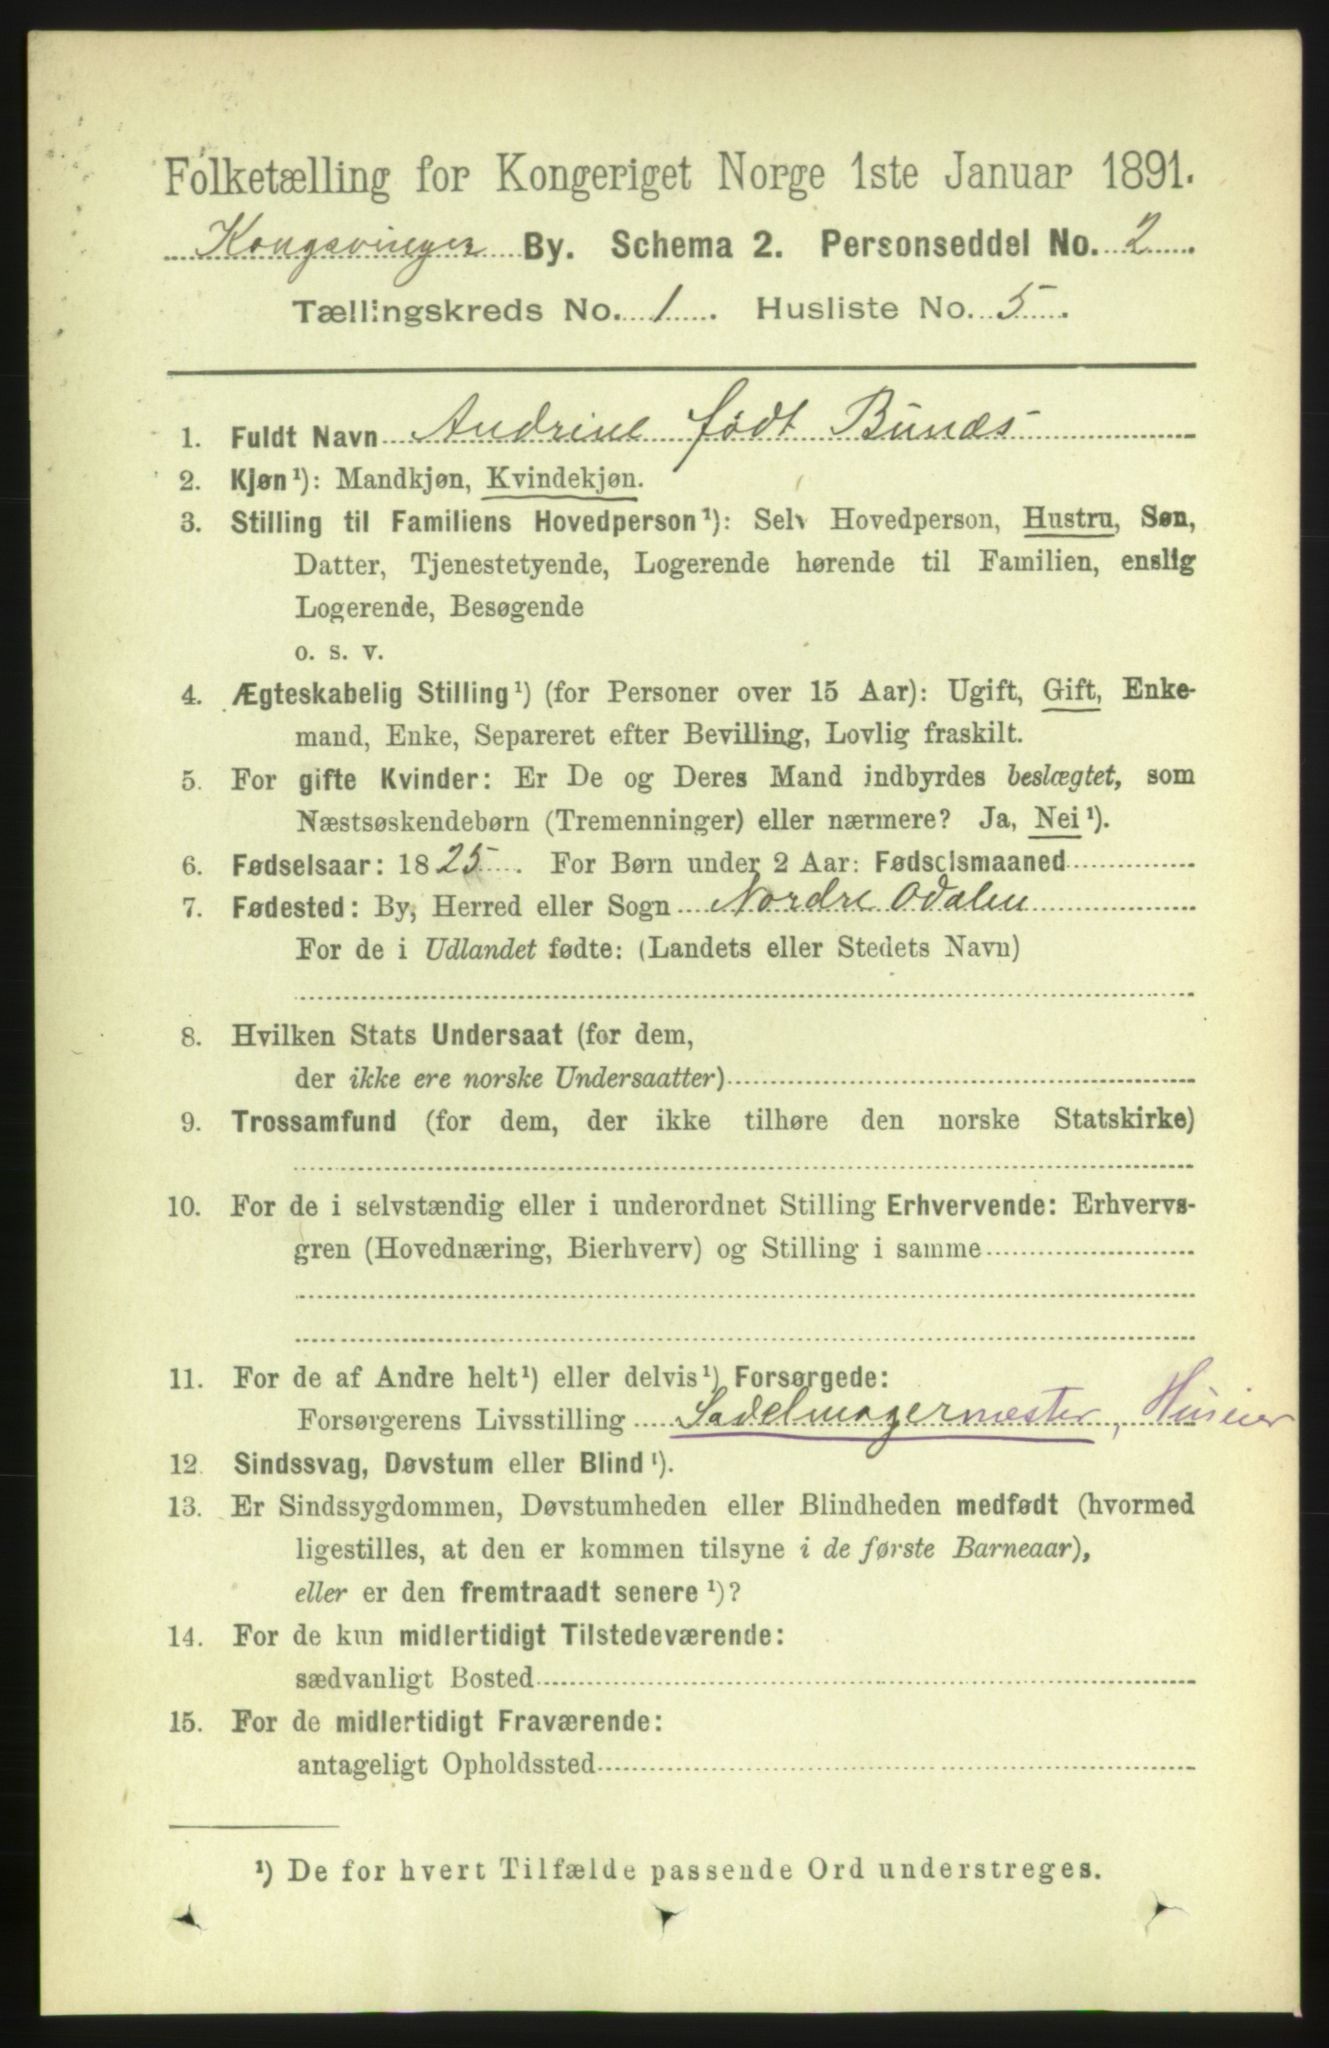 Folketælling for Kongeriget Norge 1ste Januar 1891.
Kongsvinger By. Schema 2. Personseddel No. 2
Tællingskreds No. 1. Husliste No. 5.
1. Fuldt Navn Andrine født Bunæs
2. Kjøn¹): Mandkjøn, Kvindekjøn.
3. Stilling til Familiens Hovedperson¹): Selv Hovedperson, Hustru, Søn,
Datter, Tjenestetyende, Logerende hørende til Familien, enslig
Logerende, Besøgende
o. s. v.
4. Ægteskabelig Stilling¹) (for Personer over 15 Aar): Ugift, Gift, Enke-
mand, Enke, Separeret efter Bevilling, Lovlig fraskilt.
5. For gifte Kvinder: Er De og Deres Mand indbyrdes beslægtet, som
Næstsøskendebørn (Tremenninger) eller nærmere? Ja, Nei¹).
6. Fødselsaar: 1825. For Børn under 2 Aar: Fødselsmaaned
7. Fødested: By, Herred eller Sogn Nordre Odalen
For de i Udlandet fødte: (Landets eller Stedets Navn)
8. Hvilken Stats Undersaat (for dem,
der ikke ere norske Undersaatter)
9. Trossamfund (for dem, der ikke tilhøre den norske Statskirke)
10. For de i selvstændig eller i underordnet Stilling Erhvervende: Erhvervs-
gren (Hovednæring, Bierhverv) og Stilling i samme
11. For de af Andre helt¹) eller delvis¹) Forsørgede:
Forsørgerens Livsstilling Sadelmagermester, Huseier
12. Sindssvag, Døvstum eller Blind¹).
13. Er Sindssygdommen, Døvstumheden eller Blindheden medfødt (hvormed
ligestilles, at den er kommen tilsyne i de første Barneaar),
eller er den fremtraadt senere¹)?
14. For de kun midlertidigt Tilstedeværende:
sædvanligt Bosted
15. For de midlertidigt Fraværende:
antageligt Opholdssted
¹) De for hvert Tilfælde passende Ord understreges.